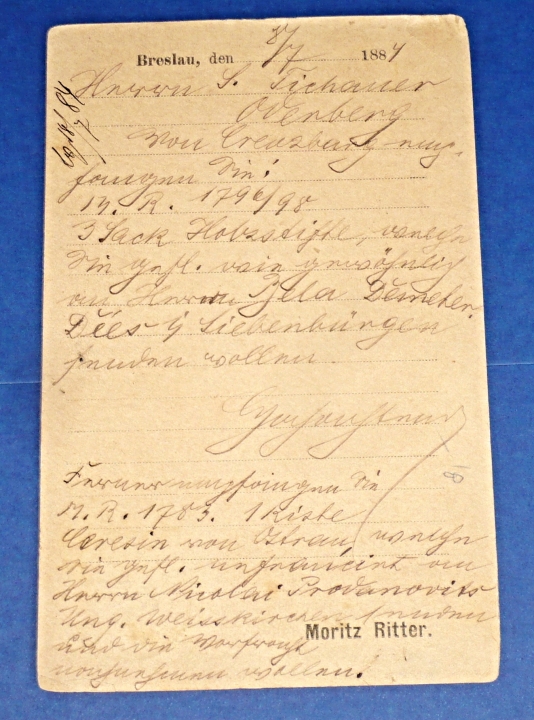 Breslau, den 8/7 1884
Herrn S. Tichauer
Oderberg
Von Creuzburg emp-
fangen Sie:
M. R. 1796/98
3 Sack Holzstifte, welche
Sie gefl. wie gewöhnlich
an Herrn Bela Demeter
Déés i/ Siebenbürgen
senden wollen.
Hochachtend
Ferner empfangen Sie
M. R. 1783. 1 Kiste
Ceresin von Ostrau, welche
Sie gefl. unfrancirt an
Herrn Nicolai Prodanovits
Ung. Weisskirchen senden
und die Vorfracht
nachnehmen wollen.
Moritz Ritter.